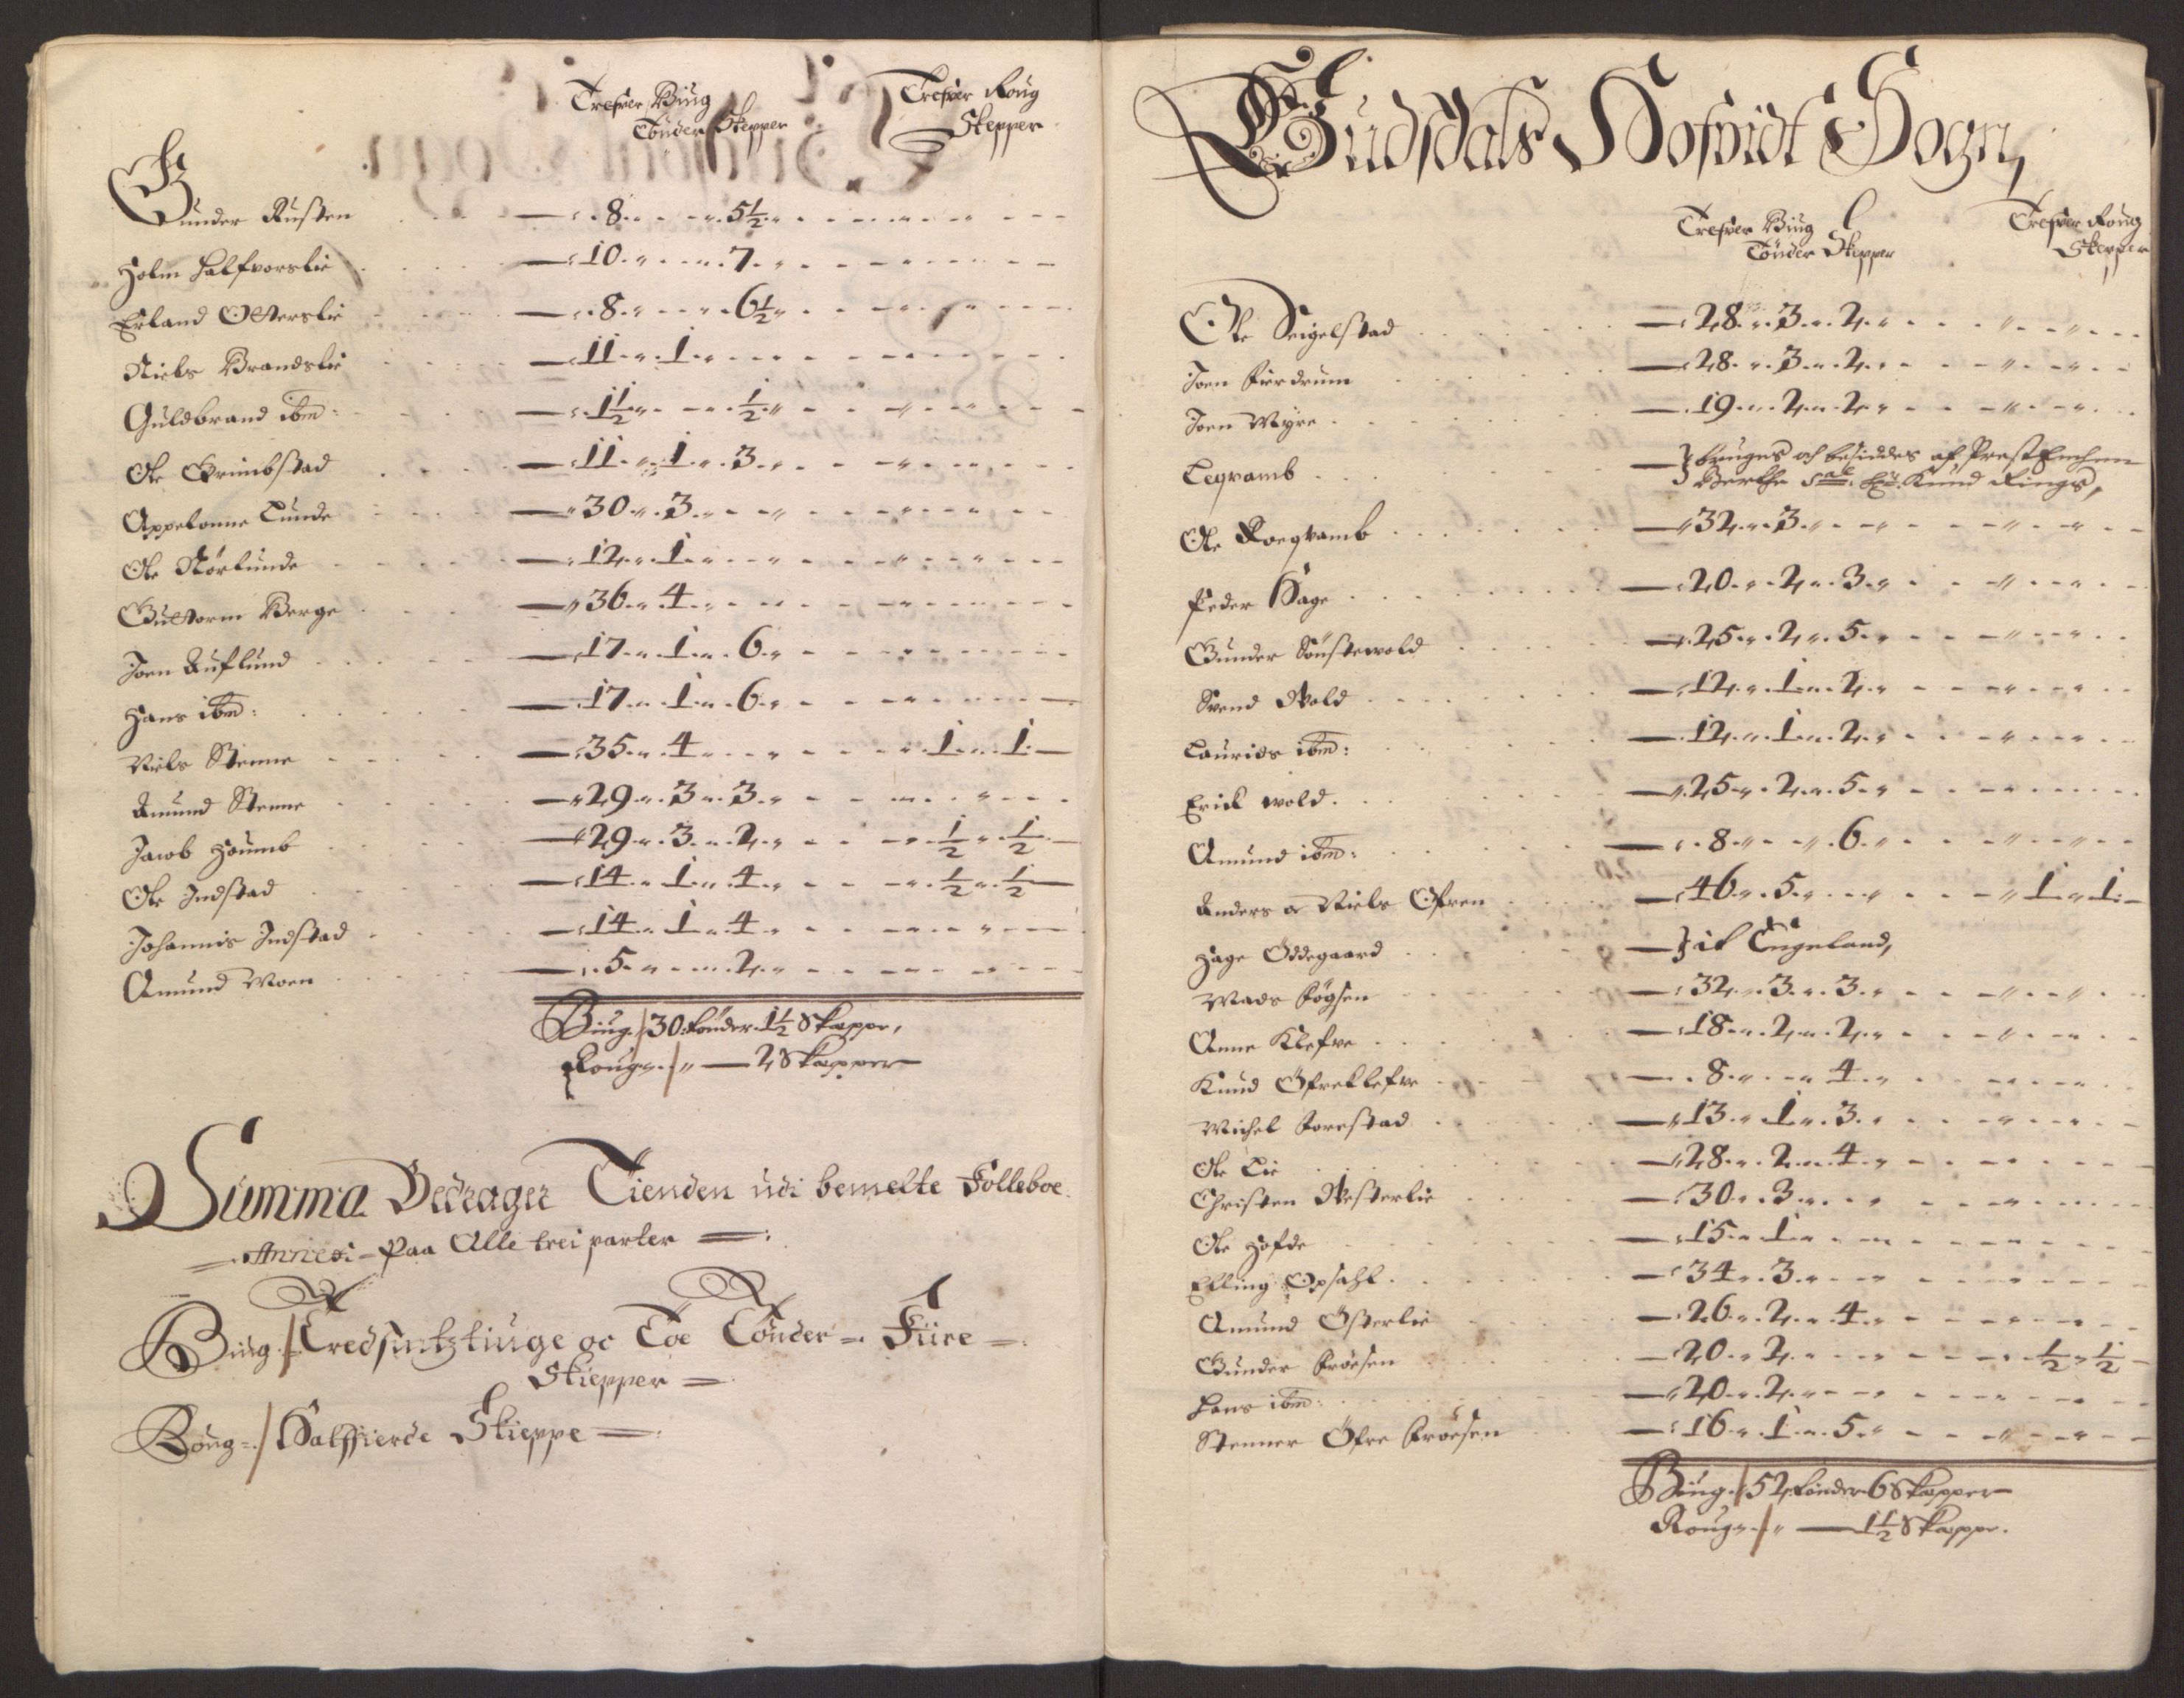 Trefver Biug Trefver Roug
Tönder Skepper Skepper
Gunder Rusten 8 5½
Holm Halfvorslie 10 7
Erland Otterslie 8 6½
Niels Brandslie 11 1
Guldbrand ibm: 1½ ½
Ole Grimbstad 11 1 3
Appelonne Lunde 30 3
Ole Nörlunde 12 1
Guttorm Berge 36 4
Joen Auflund 17 1 6
Hans ibm: 17 1 6
Niels Stenne 35 4 1 1
Amund Stenne 29 3 3
Jacob Houmb 29 3 2 ½ ½
Ole Indstad 14 1 4 ½ ½
Johannis Indstad 14 1 4
Amund Moen 5 2
Biug / 30 tönder 1½ Skeppe,
Roug / " — 2 Skepper
Summa Bedrager Tienden udi bemelte Folleboe
Annex: Paa Alle trei parter
Biug / Tredsindztiuge oc Toe Tönder Fiire
Skiepper
Roug / Halffierde Skieppe
Gudsdals Hofvidt Sogn,
Trefver Biug Trefver Roug
Tönder Skepper Skepper
Ole Seigelstad 28 3 2
Joen Fierdrum 28 3 2
Joen Myre 19 2 2
Legvamb } bruges och besiddes af Prest Enchen
Berthe Sal: Hr: Knud Rings,
Ole Roegvamb 32 3
Peder Hage 20 2 3
Gunder Sönstewold 25 2 5
Svend Wold 12 1 2
Laurids ibm: 12 1 2
Erick wold 25 2 5
Amund ibm: 8 6
Anders oc Niels Ofren 46 5 1 1
Hage Öddegaard } it Engeland,
Mads Fögsen 32 3 3
Anne Klefve 18 2 2
Knud Öfreklefve 8 4
Michel Forestad 13 1 3
Ole Lie 28 2 4
Christen Westerlie 30 3
Ole Hofde 15 1
Elling Opsahl 34 3
Amund Österlie 26 2 4
Gunder Fröesen 20 2 ½ ½
Hans ibm: 20 2
Stenner Öfre Fröesen 16 1 5
Biug / 52 tönder 6 Skepper
Roug / " — 1½ Skeppe.